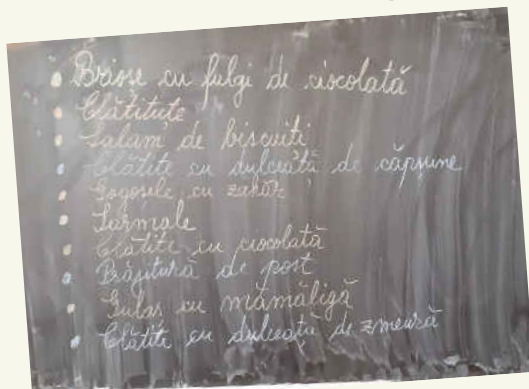 Brioșe cu fulgi de ciocolată
Clătitute
Salam de biscuiti
Clătite cu dulceată de căpșune
Gogosele cu zahăr
Sarmale
Clătite cu ciocolată
Prăjitură de post
Gulas cu mămăligă
Clătite cu dulceată de zmeură